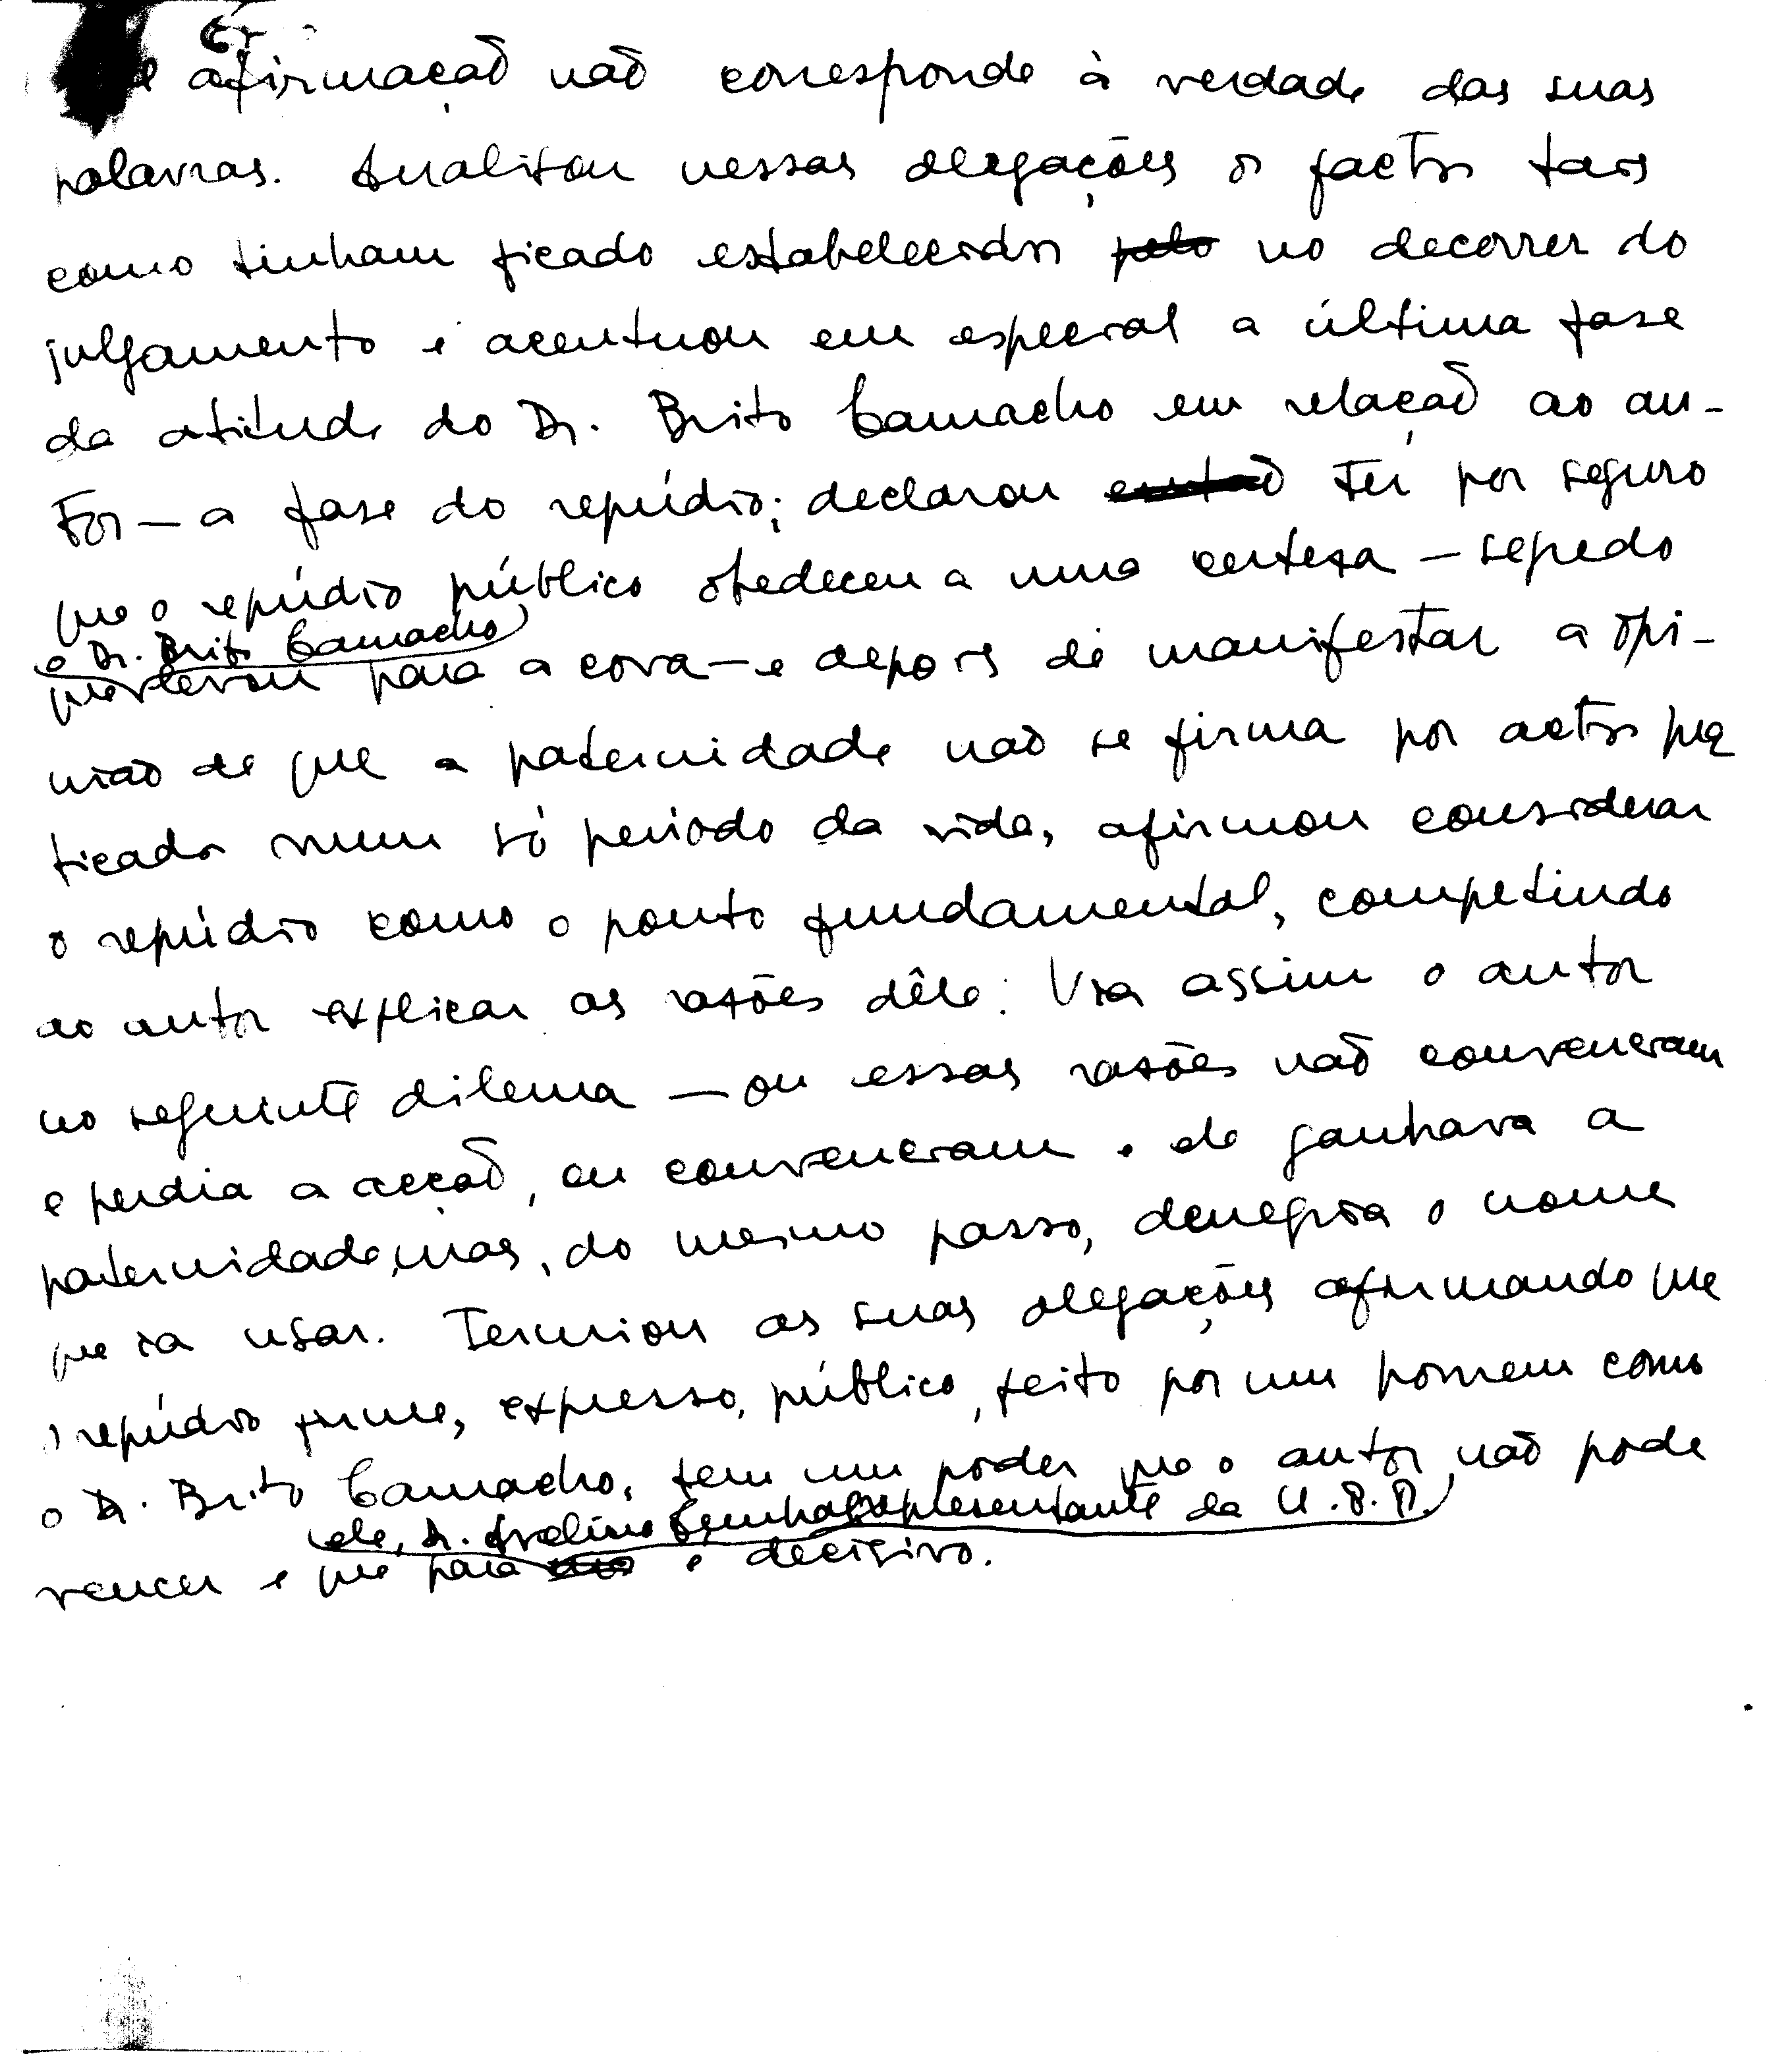 e afirmação não corresponde à verdade das suas
palavras. Analisou nessas alegações os factos tais
como tinham ficado estabelecidos pelo no decorrer do
julgamento e acentuou em especial a última fase
da atitude do Dr. Brito Camacho em relação ao au-
tor — a fase do repúdio; declarou então ter por seguro
que o repúdio público obedeceu a uma certeza — segredo
o Dr. Brito Camacho
que levou para a cova — e depois de manifestar a opi-
nião de que a paternidade não se firma por actos pra
ticados num só período da vida, afirmou considerar
o repúdio como o ponto fundamental, competindo
ao autor explicar as razões dêle. Via assim o autor
no seguinte dilema — ou essas razões não convenceram
e perdia a acção, ou convenceram e ele ganhava a
paternidade, mas, do mesmo passo, denegria o nome
que ia usar. Terminou as suas alegações afirmando que
o repúdio firme, expresso, público, feito por um homem como
o Dr. Brito Camacho, tem um poder que o autor não pode
ele, Dr. Avelino representante da U. B. P.
vencer e que para é decisivo.